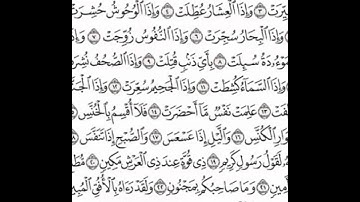 يِّرَتْ ٣ وَإِذَا ٱلْعِشَارُ عُطِّلَتْ ٤ وَإِذَا ٱلْوُحُوشُ حُشِرَتْ
وَإِذَا ٱلْبِحَارُ سُجِّرَتْ ٦ وَإِذَا ٱلنُّفُوسُ زُوِّجَتْ ٧
مَوْءُۥدَةُ سُئِلَتْ ٨ بِأَىِّ ذَنۢبٍ قُتِلَتْ ٩ وَإِذَا ٱلصُّحُفُ نُشِرَ
وَإِذَا ٱلسَّمَآءُ كُشِطَتْ ١١ وَإِذَا ٱلْجَحِيمُ سُعِّرَتْ ١٢ وَإِذَا ٱلْجَنَّ
لِفَتْ ١٣ عَلِمَتْ نَفْسٌ مَّآ أَحْضَرَتْ ١٤ فَلَآ أُقْسِمُ بِٱلْخُنَّسِ
وَارِ ٱلْكُنَّسِ ١٦ وَٱلَّيْلِ إِذَا عَسْعَسَ ١٧ وَٱلصُّبْحِ إِذَا تَنَفَّسَ ١٨
لَقَوْلُ رَسُولٍ كَرِيمٍ ١٩ ذِى قُوَّةٍ عِندَ ذِى ٱلْعَرْشِ مَكِينٍ ٢٠
أَمِينٍ ٢١ وَمَا صَاحِبُكُم بِمَجْنُونٍ ٢٢ وَلَقَدْ رَءَاهُ بِٱلْأُفُقِ ٱلْمُبِينِ